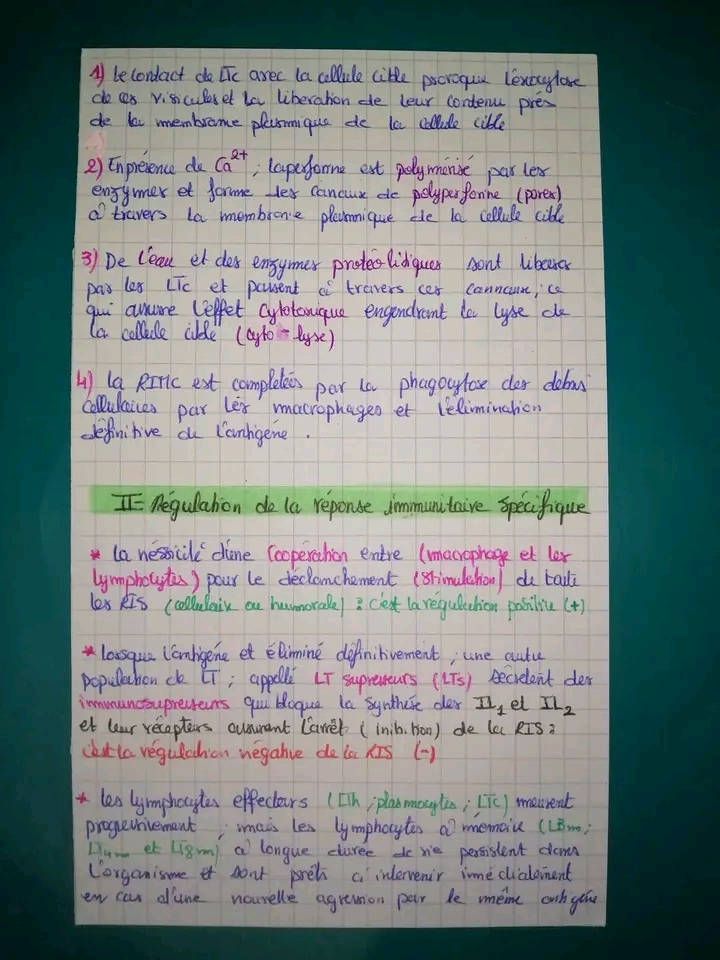 1) Le contact de LTc avec la cellule cible provoque l'exocytose
de ces visicules et la liberation de leur contenu près
de la membrane plasmique de la cellule cible
2) En présence de Ca2+, laperforine est polymérisé par les
enzymes et forme des canaux de polyperforine (pores)
à travers la membrane plasmique de la cellule cible
3) De l'eau et des enzymes protéolitiques sont liberer
par les LTc et passent à travers ces cannaux, ce
qui assure l'effet cytotoxique engendrant la lyse de
la cellule cible (cyto-lyse)
4) la RIMC est completées par la phagocytose des debris
cellulaires par les macrophages et l'élimination
définitive de l'antigène .
II= Régulation de la réponse immunitaire spécifique
* la néssicité d'une Coopération entre (macrophage et les
lymphocytes) pour le déclanchement (stimulation) de toute
les RIS (cellulaire ou humorale) : c'est la régulation positive (+)
* lorsque l'antigène et éliminé définitivement, une autre
population de LT ; appellé LT supresseurs (LTs) secrètent des
immunosupresseurs qui bloque la synthèse des IL1 et IL2
et leur récepteurs assurant l'arrêt (inibition) de la RIS :
c'est la régulation négative de la RIS (-)
* les lymphocytes effecteurs (LTh ; plasmocytes ; LTc) meurent
progressivement, mais les lymphocytes à mémoire (LBm ;
LT4m et LT8m) à longue durée de vie persistent dans
l'organisme et sont prêts à intervenir immédiatement
en cas d'une nouvelle agression par le même antigène